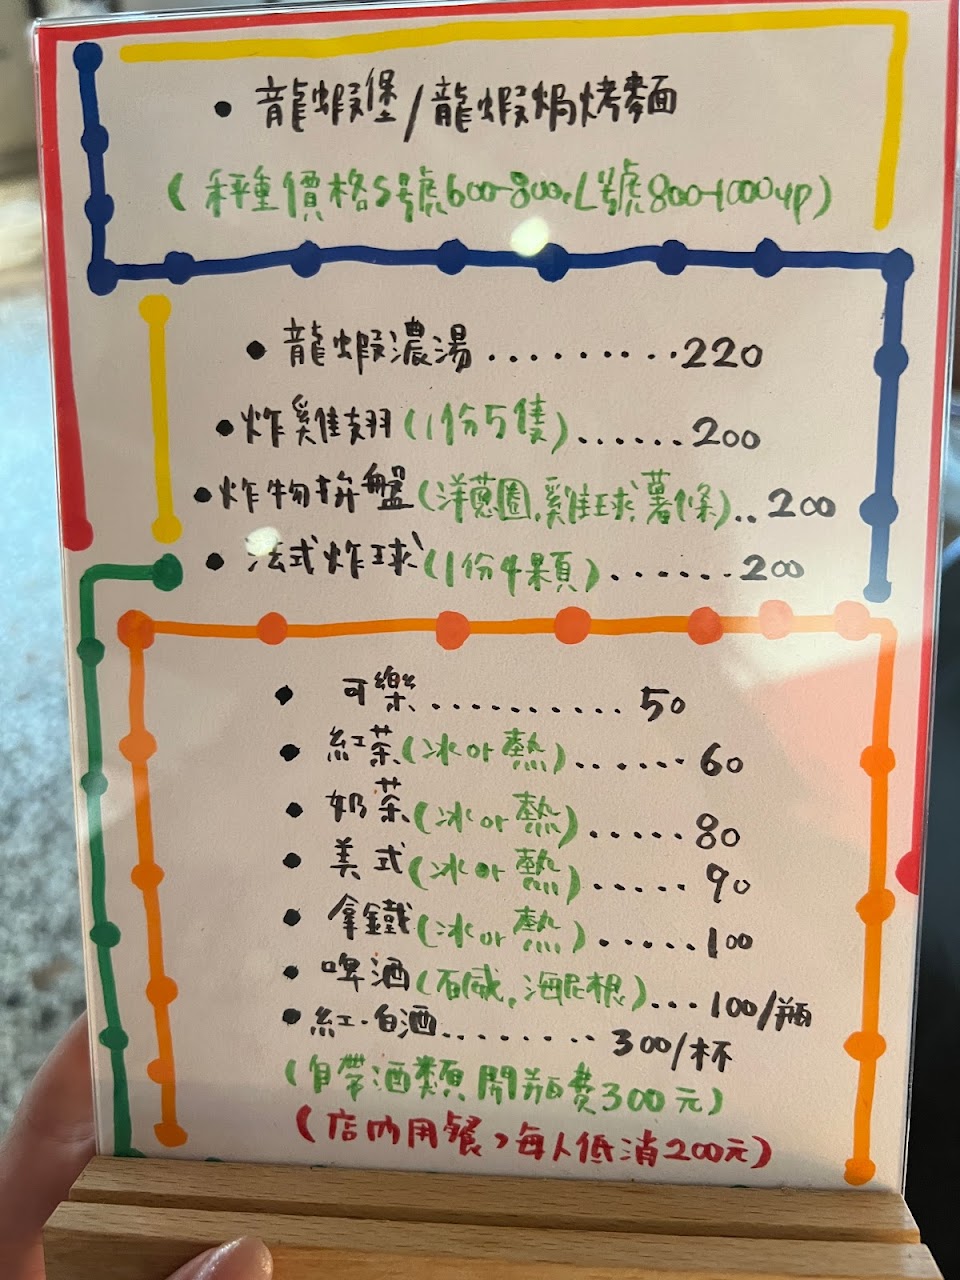 • 龍蝦堡/龍蝦焗烤麵
(秤重價格S號600-800,L號800-1000up)
• 龍蝦濃湯..........220
• 炸雞翅(1份5隻)......200
• 炸物拼盤(洋蔥圈,雞球,薯條)..200
• 法式炸球(1份4顆).......200
• 可樂...........50
• 紅茶(冰or熱).......60
• 奶茶(冰or熱).....80
• 美式(冰or熱).....90
• 拿鐵(冰or熱).....100
• 啤酒(石威,海尼根)...100/瓶
• 紅.白酒.........300/杯
(自帶酒類開瓶費300元)
(店內用餐,每人低消200元)